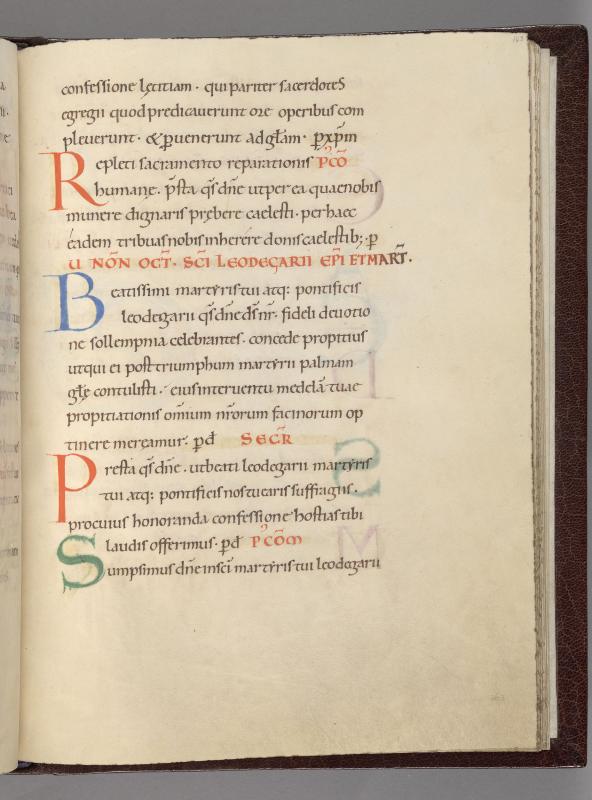 confessione lętitiam · qui pariter sacerdoteS
egregii quod predicauerunt ore operibus com
pleuerunt · & ꝑuenerunt ad gl̄am · ꝑ xp̄m
Repleti sacramento reparationis P̕CŌ
humanę · p̄sta qs̄ dn̄e ut per ea quae nobis
munere dignaris prębere caelesti · per haec
eadem tribuas nobis inherere donis caelestib; · ꝑ
U NŌN OCT̄ · SC̄I LEODEGARII EP̄I ET MART̄ ·
Beatissimi martyris tui atq: pontificis
leodegarii qs̄ dn̄e ds̄ nr̄ · fideli deuotio
ne sollempnia celebrantes · concede propitius
ut qui ei post triumphum martyrii palmam
glę contulisti · eius interuentu medelā tuae
propitiationis omnium nr̄orum facinorum op
tinere mereamur · ꝑ d̄ SECR̄
Presta qs̄ dn̄e · ut beati leodegarii martyris
tui atq: pontificis nos tuearis suffragiis ·
pro cuius honoranda confessione hostias tibi
laudis offerimus · ꝑ d̄ P̕CŌM
Sumpsimus dn̄e in sc̄i martyris tui leodegarii